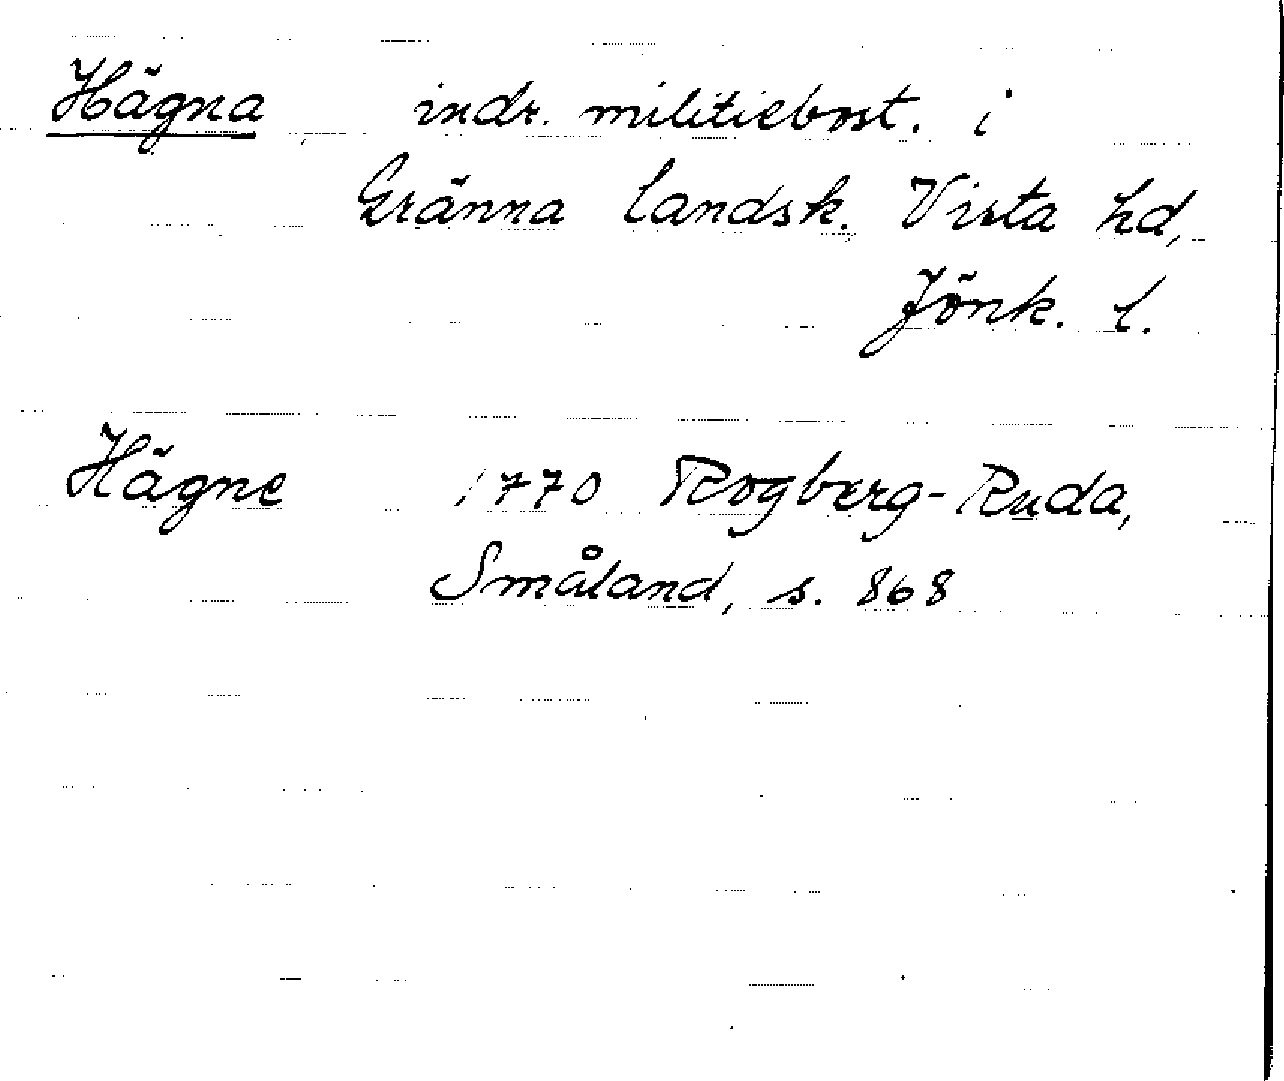 Hägna indr. militiebost. i
Gränna landsk. Vista hd,
Jönk. l.
Hägne 1770 Rogberg-Ruda,
Småland, s. 868